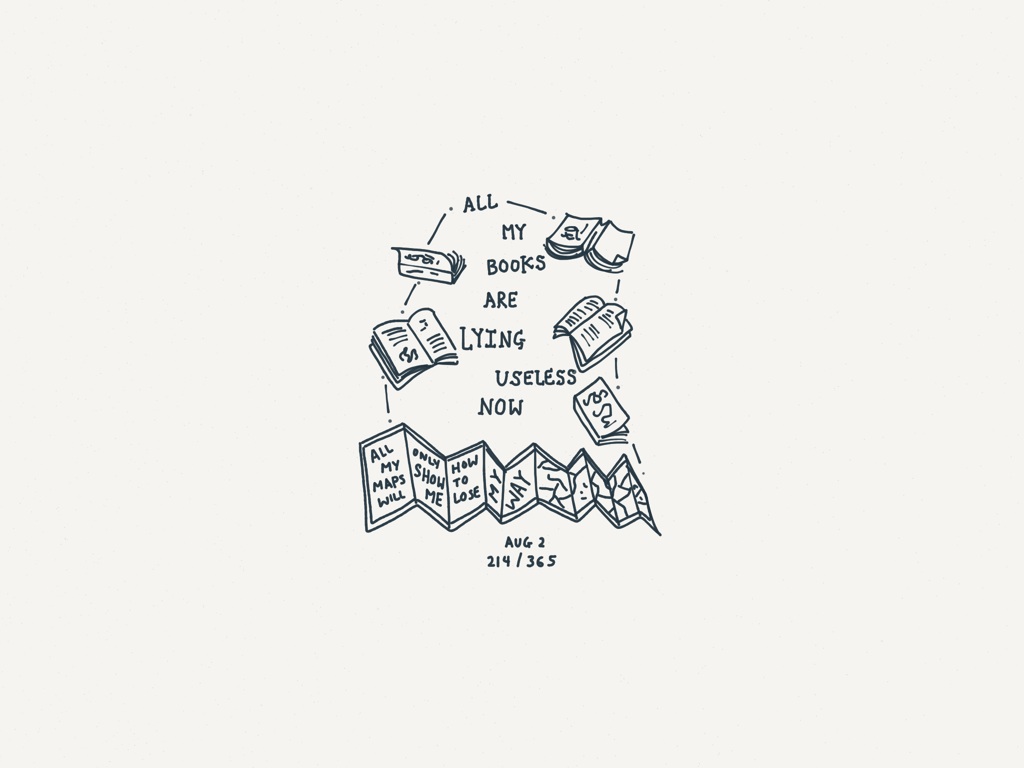 ALL
MY
BOOKS
ARE
LYING
USELESS
NOW
ALL
MY
MAPS
WILL
ONLY
SHOW
ME
HOW
TO
LOSE
MY
WAY
AUG 2
214/365